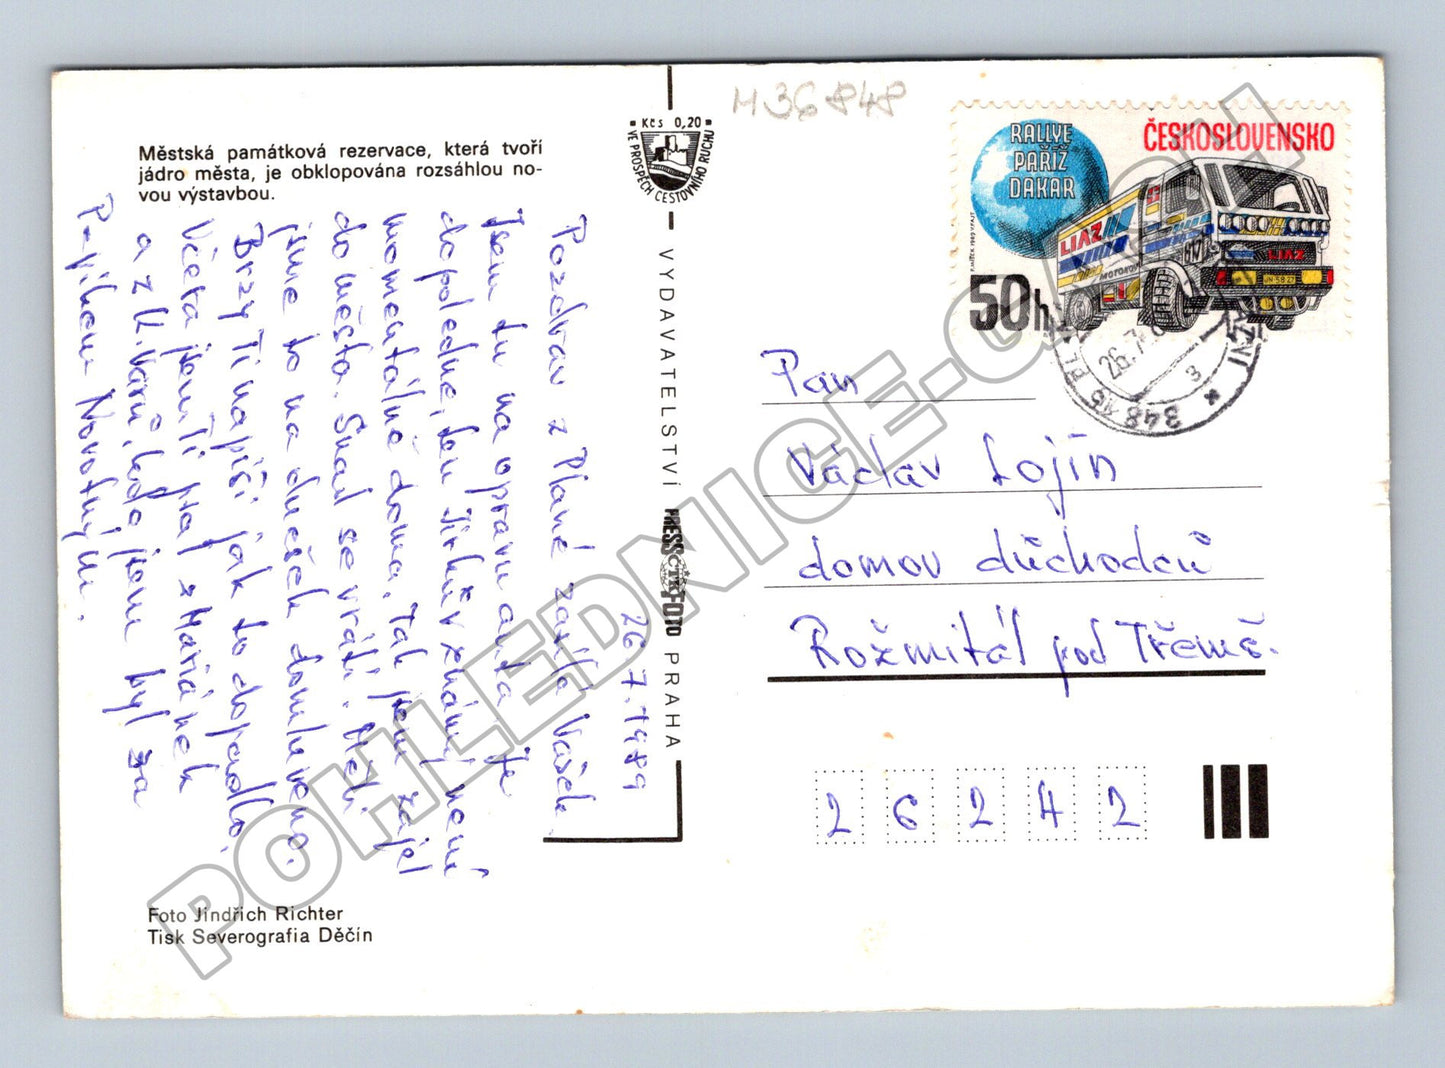 M36848
Městská památková rezervace, která tvoří
jádro města, je obklopována rozsáhlou no-
vou výstavbou.
26.7.1989
Pozdrav z Plané zasílá Vašek
Jsem tu na opravu auta. Je
dopoledne, ten Jirkův známý není
momentálně doma. Tak jsem zajel
do města. Snad se vrátí. Měli
jsme to na dnešek domluveno.
Brzy Ti napíši jak to dopadlo.
Včera jsem Ti psal z Mariánek
a z K. Varů, kde jsem byl za
Pepíkem Novotným.
Foto Jindřich Richter
Tisk Severografia Děčín
Kčs 0,20
VE PROSPĚCH CESTOVNÍHO RUCHU
VYDAVATELSTVÍ PRESSFOTO PRAHA
ČTK
RALLYE
PAŘÍŽ
DAKAR
ČESKOSLOVENSKO
LIAZ
MOTOROL
LIAZ
50h
26.7.
348 15 PL
3
Pan
Václav Lojín
domov důchodců
Rožmitál pod Třemš.
26242
POHLEDNICE-OBCH